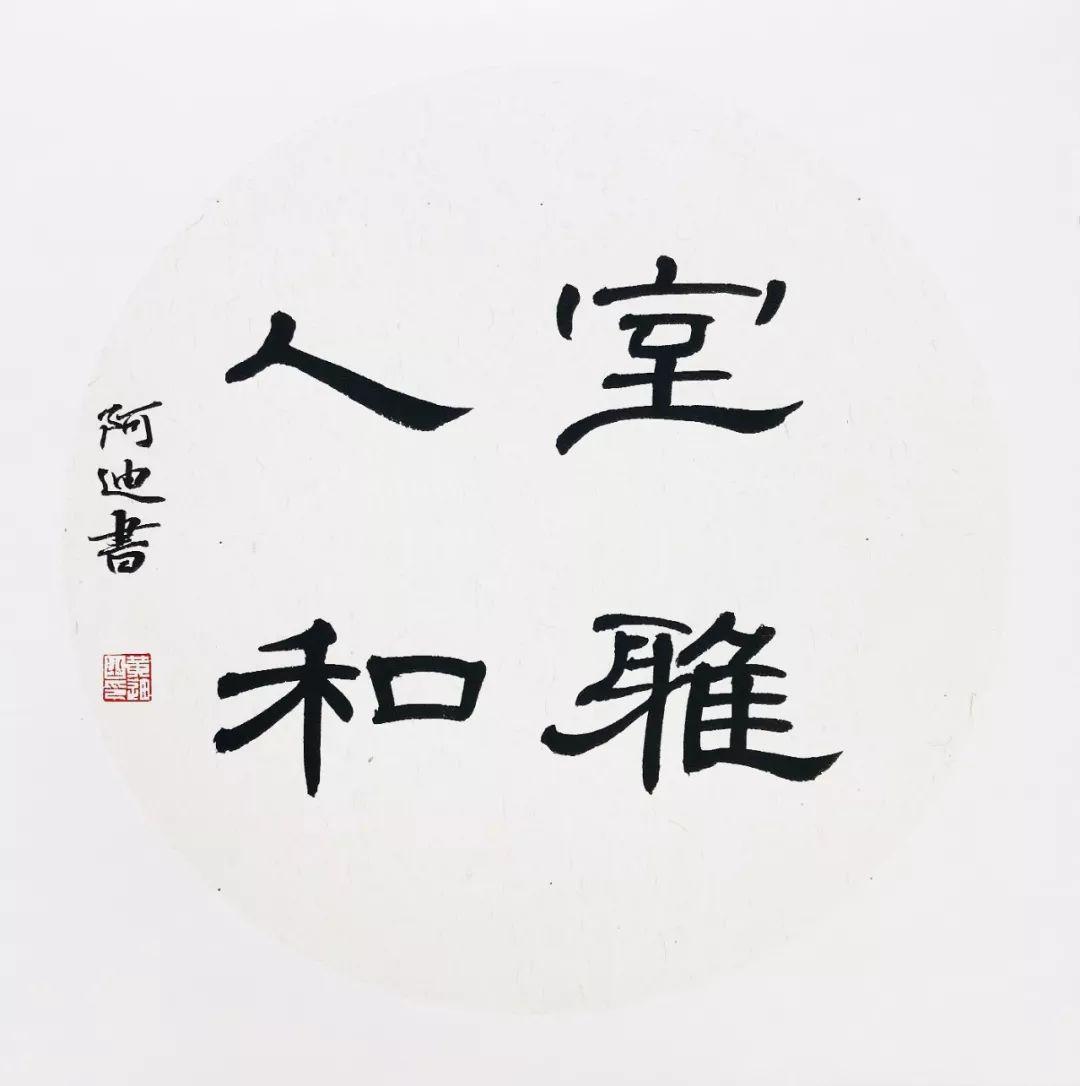 室雅
人和
阿迪書